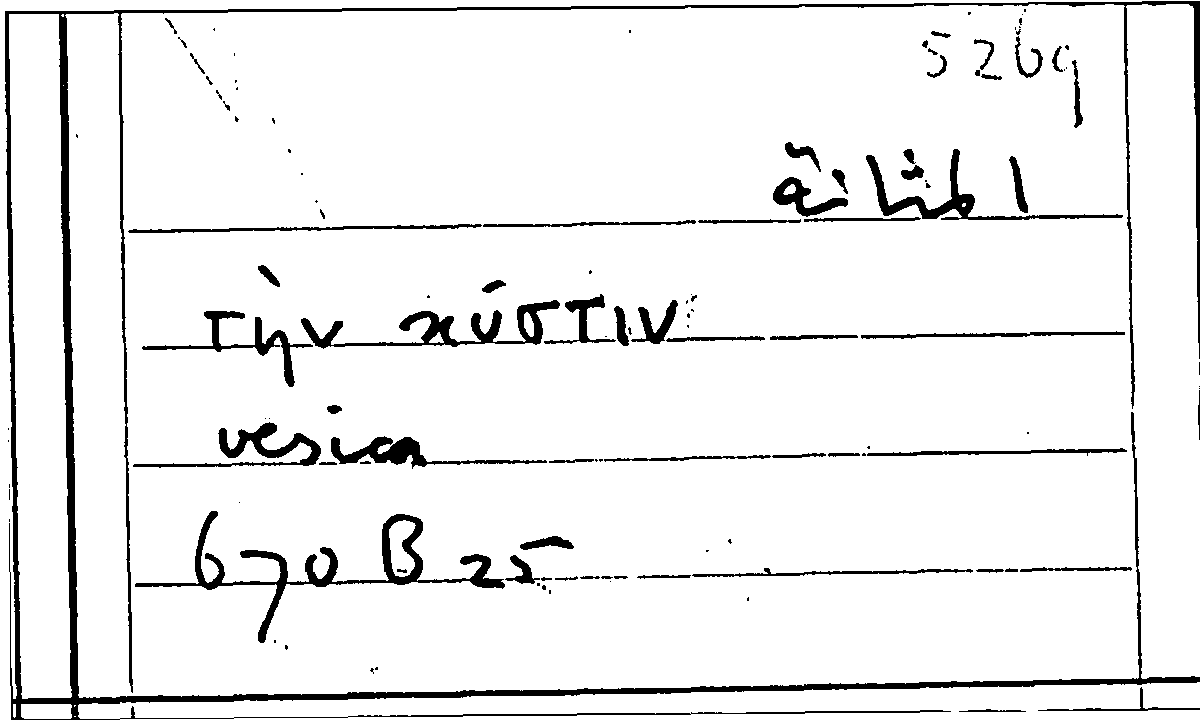 5269
المثانة
τὴν κύστιν
vesica
670 B 25